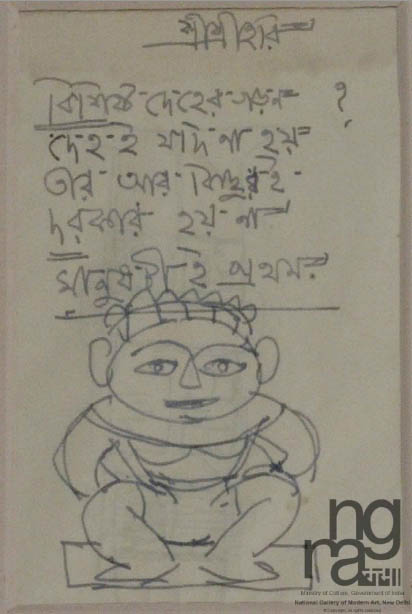 শ্রীশ্রীহরি
বিশিষ্ট দেহের গড়ন ?
দেহ-ই যদি না হয়
তার আর কিছুরই
দরকার হয় না
মানুষটাই প্রথম
ngma
Ministry of Culture, Government of India
National Gallery of Modern Art, New Delhi